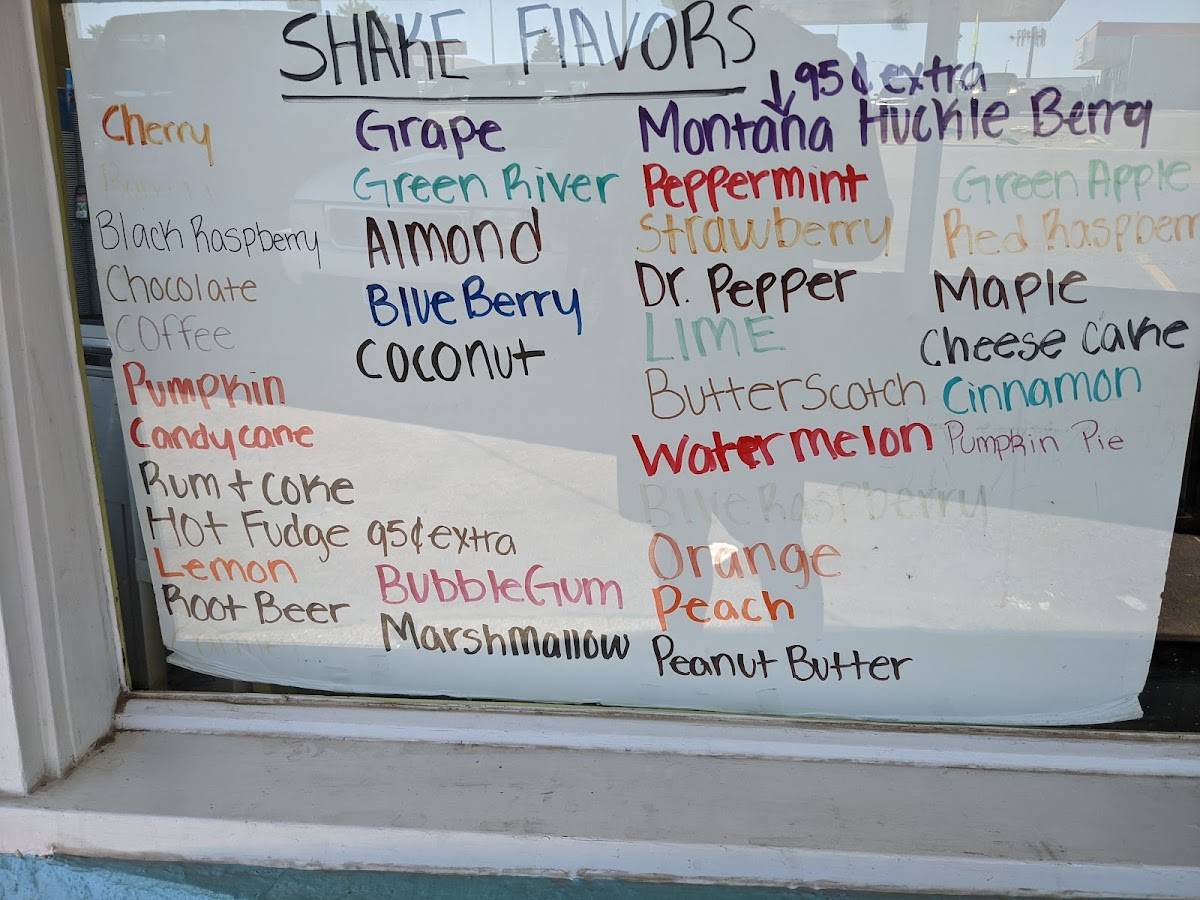 SHAKE FLAVORS
↓ 95¢ extra
Cherry
Black Raspberry
Chocolate
Coffee
Pumpkin
Candy cane
Rum + coke
Hot Fudge 95¢ extra
Lemon
Root Beer
Grape
Green River
Almond
Blue Berry
Coconut
BubbleGum
Marshmallow
Montana Huckle Berry
Peppermint
Strawberry
Dr. Pepper
LIME
ButterScotch
Watermelon
Blue Raspberry
Orange
Peach
Peanut Butter
Green Apple
Red Raspberr
Maple
Cheese cake
Cinnamon
Pumpkin Pie